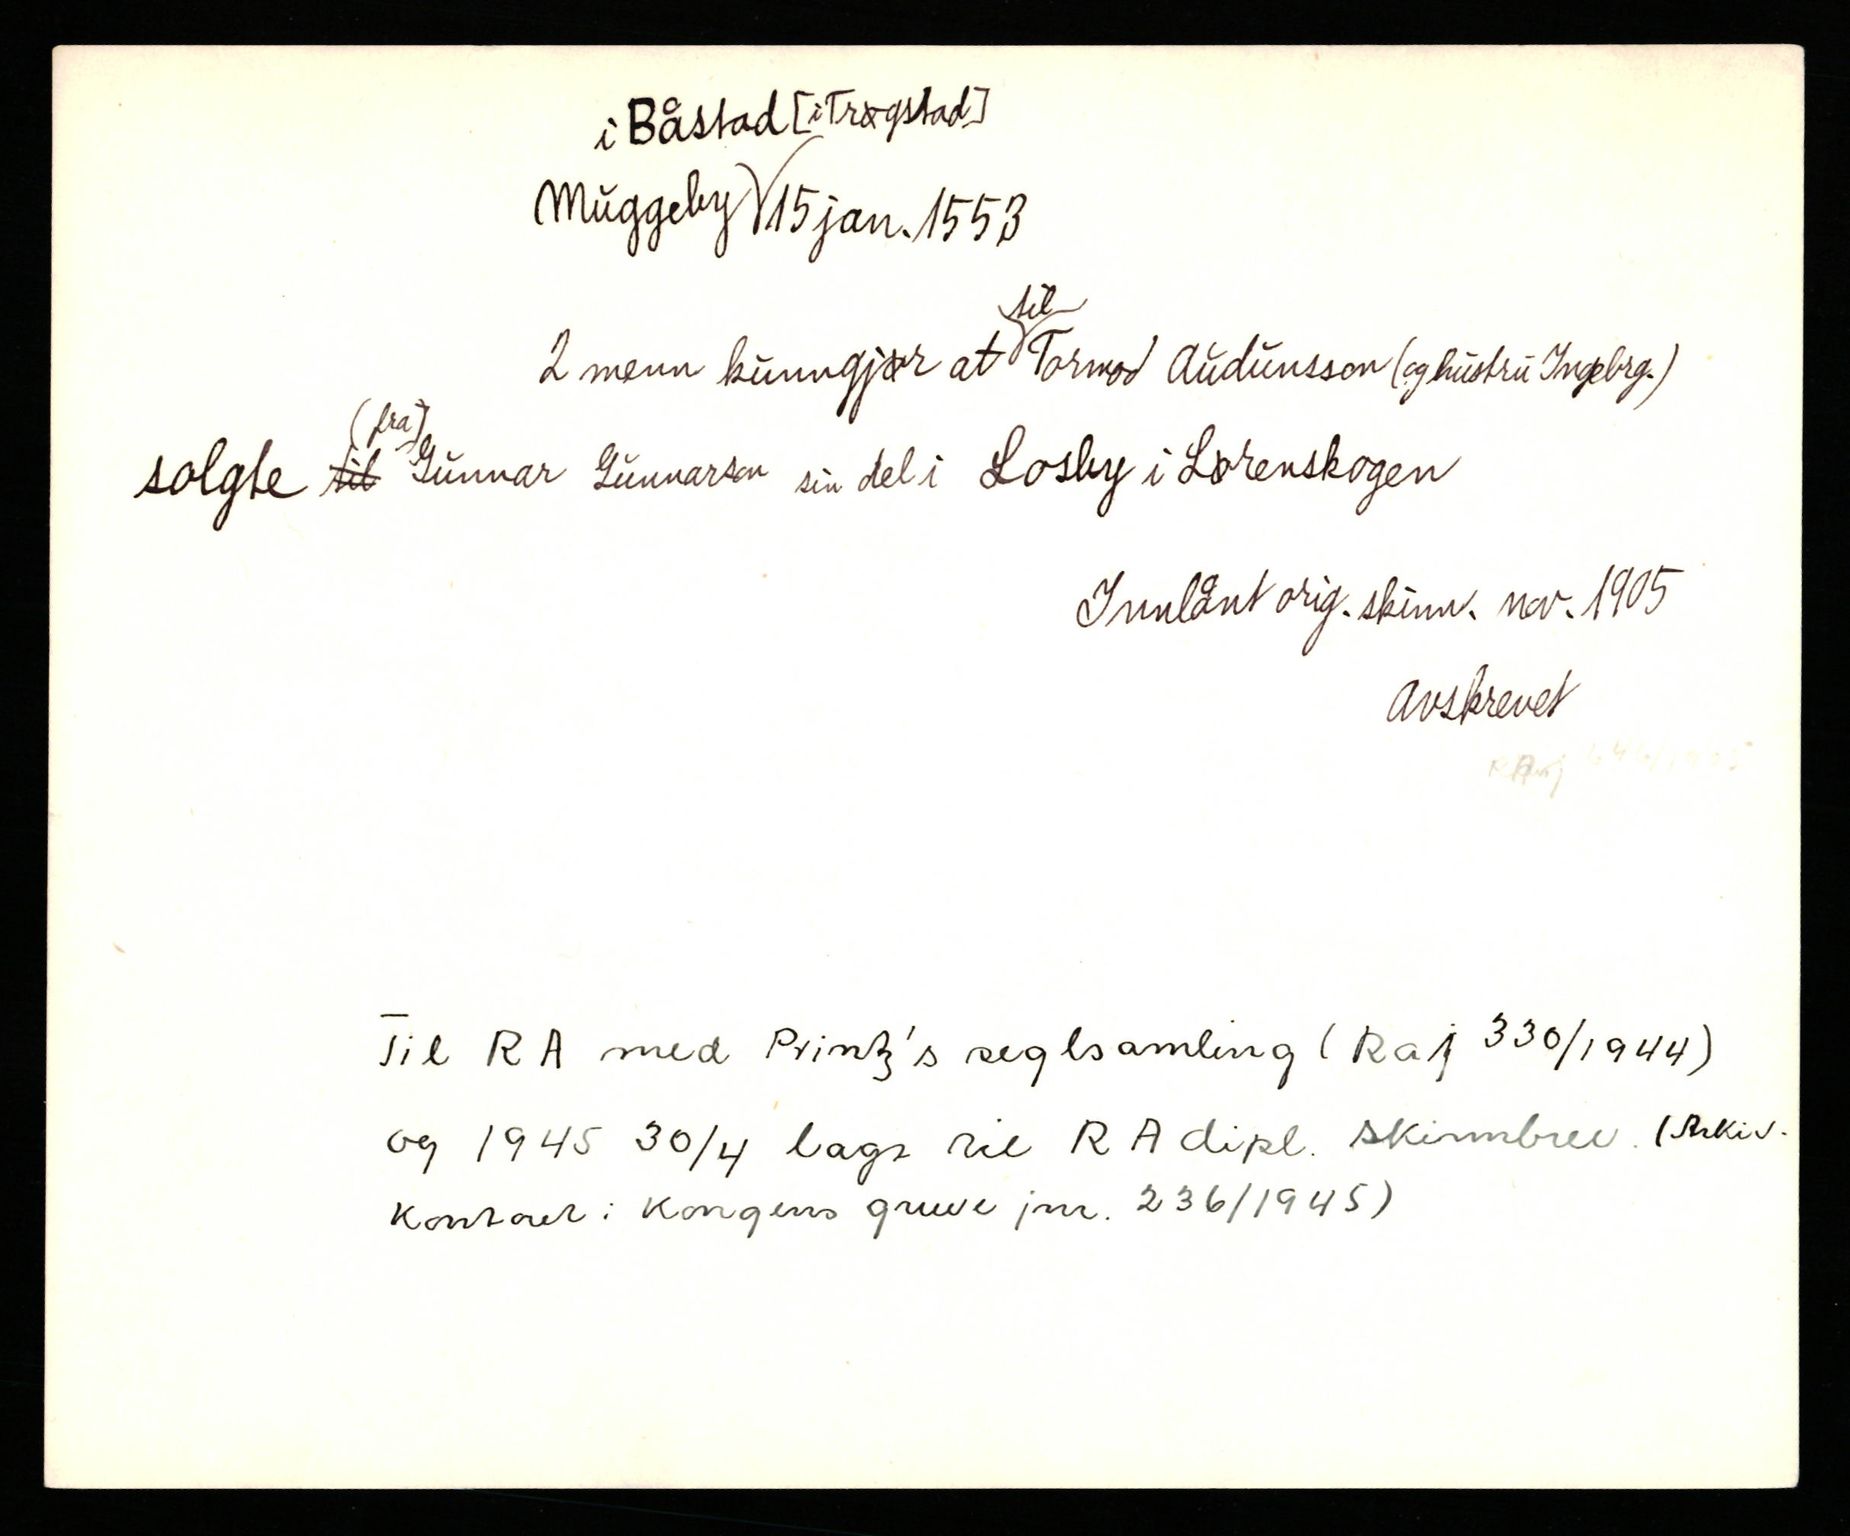 i Båstad [i Trøgstad]
Muggeby 15 jan. 1553
til
2 menn kunngjør at Tormod Audunsson (og hustru Ingebrg.)
(fra)
solgte til Gunnar Gunnarson sin del i Losby i Lørenskogen
Innlånt orig. skinn. nov. 1905
Avskrevet
Til RA med Printz's seglsamling (Raj 330/1944)
og 1945 30/4 lagt til RA dipl. skinnbrev. (Arkiv-
kontoret i Kongens gruve jnr. 236/1945)